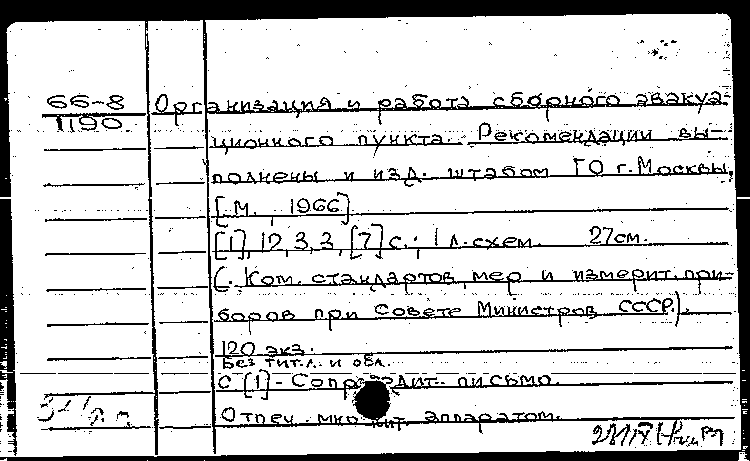 66-8 Организация и работа сборного эвакуа-
1190. ционного пункта. Рекомендации вы-
полнены и изд. штабом ГО г. Москвы.
[М., 1966]
[1], 12, 3, 3, [7] с.; 1 л. схем. 27см.
(. Ком. стандартов, мер и измерит. при-
боров при Совете Министров СССР).
120 экз.
Без тит. л. и обл.
С [1] - Сопроводит. письмо.
Отпеч. множит. аппаратом.